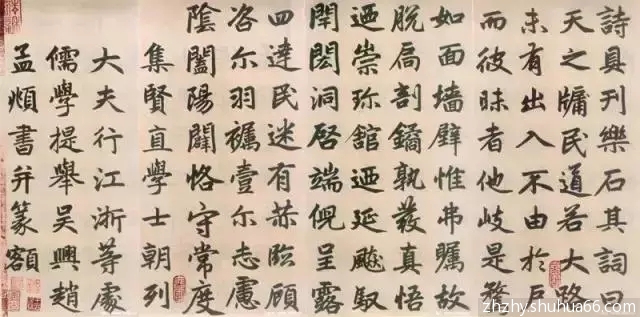 詩具刊樂石其詞曰
天之牖民道若大路
未有出入不由於戶
而彼昧者他岐是騖
如面墻壁惟弗矚故
脫扃剖鐍孰發真悟
迺崇珎舘迺延飈馭
閈閎洞啓端倪呈露
四達民迷有赫臨顧
咨尔羽襹壹尔志慮
陰闔陽闢恪守常度
集賢直學士朝列
大夫行江浙等處
儒學提舉吳興趙
孟頫書并篆額
zhzhy.shuhua66.com